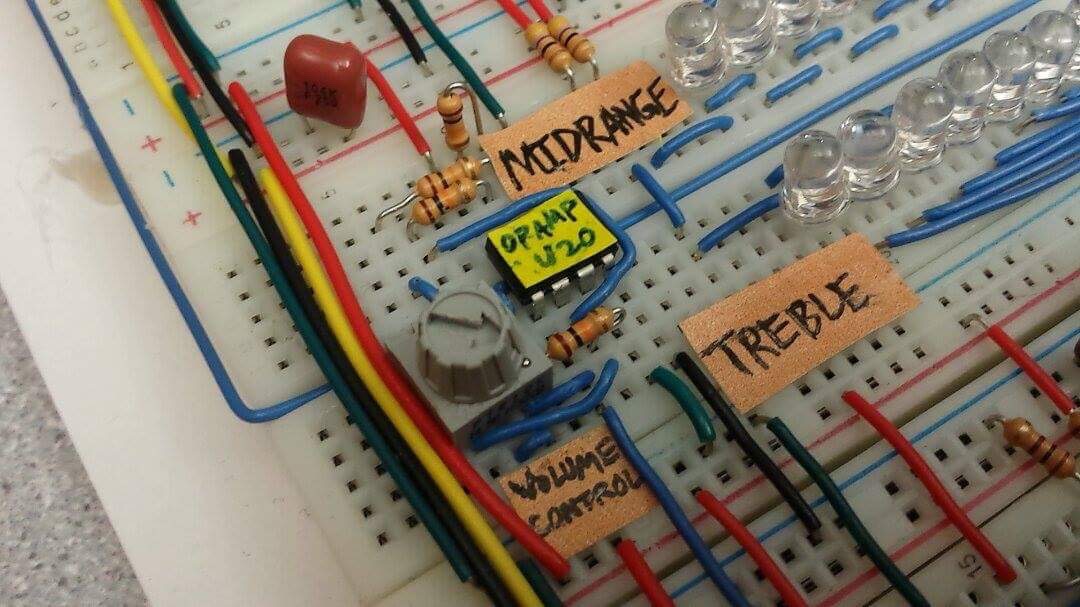 MIDRANGE
OPAMP
U20
TREBLE
VOLUME
CONTROL
15